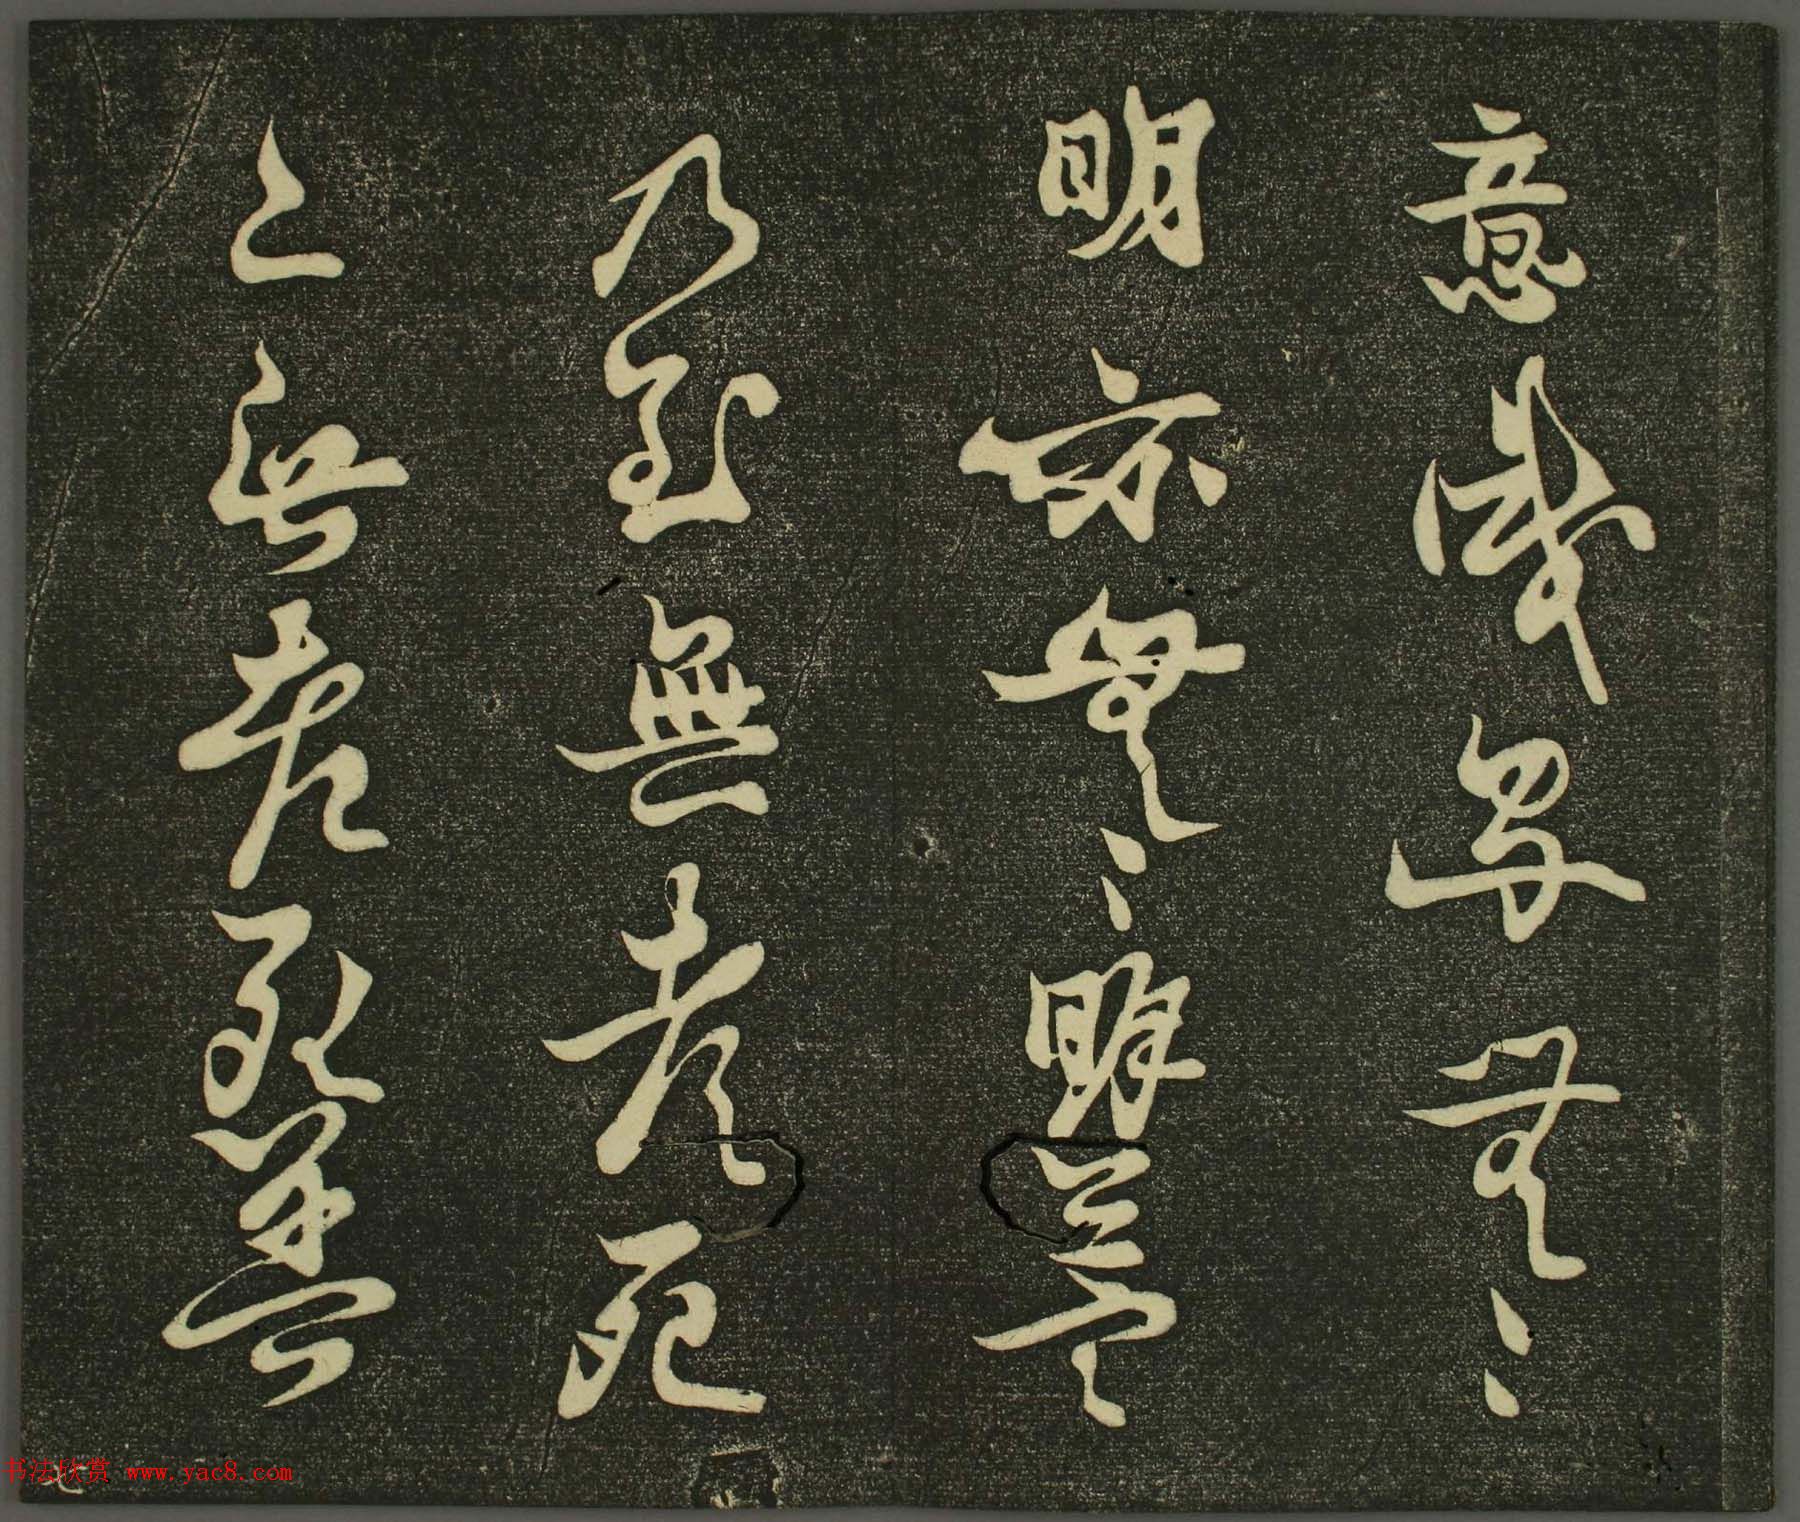 意識界無〻
明亦無〻明盡
乃至無老死
亦無老死盡
书法欣赏 www.yac8.com